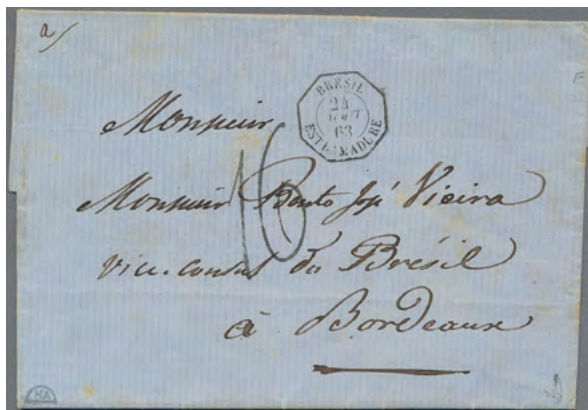 a/
BRÉSIL
24
AOUT
63
ESTREMADURE
Monsieur
16
Monsieur Bento José Vieira
vice-consul du Brésil
à Bordeaux